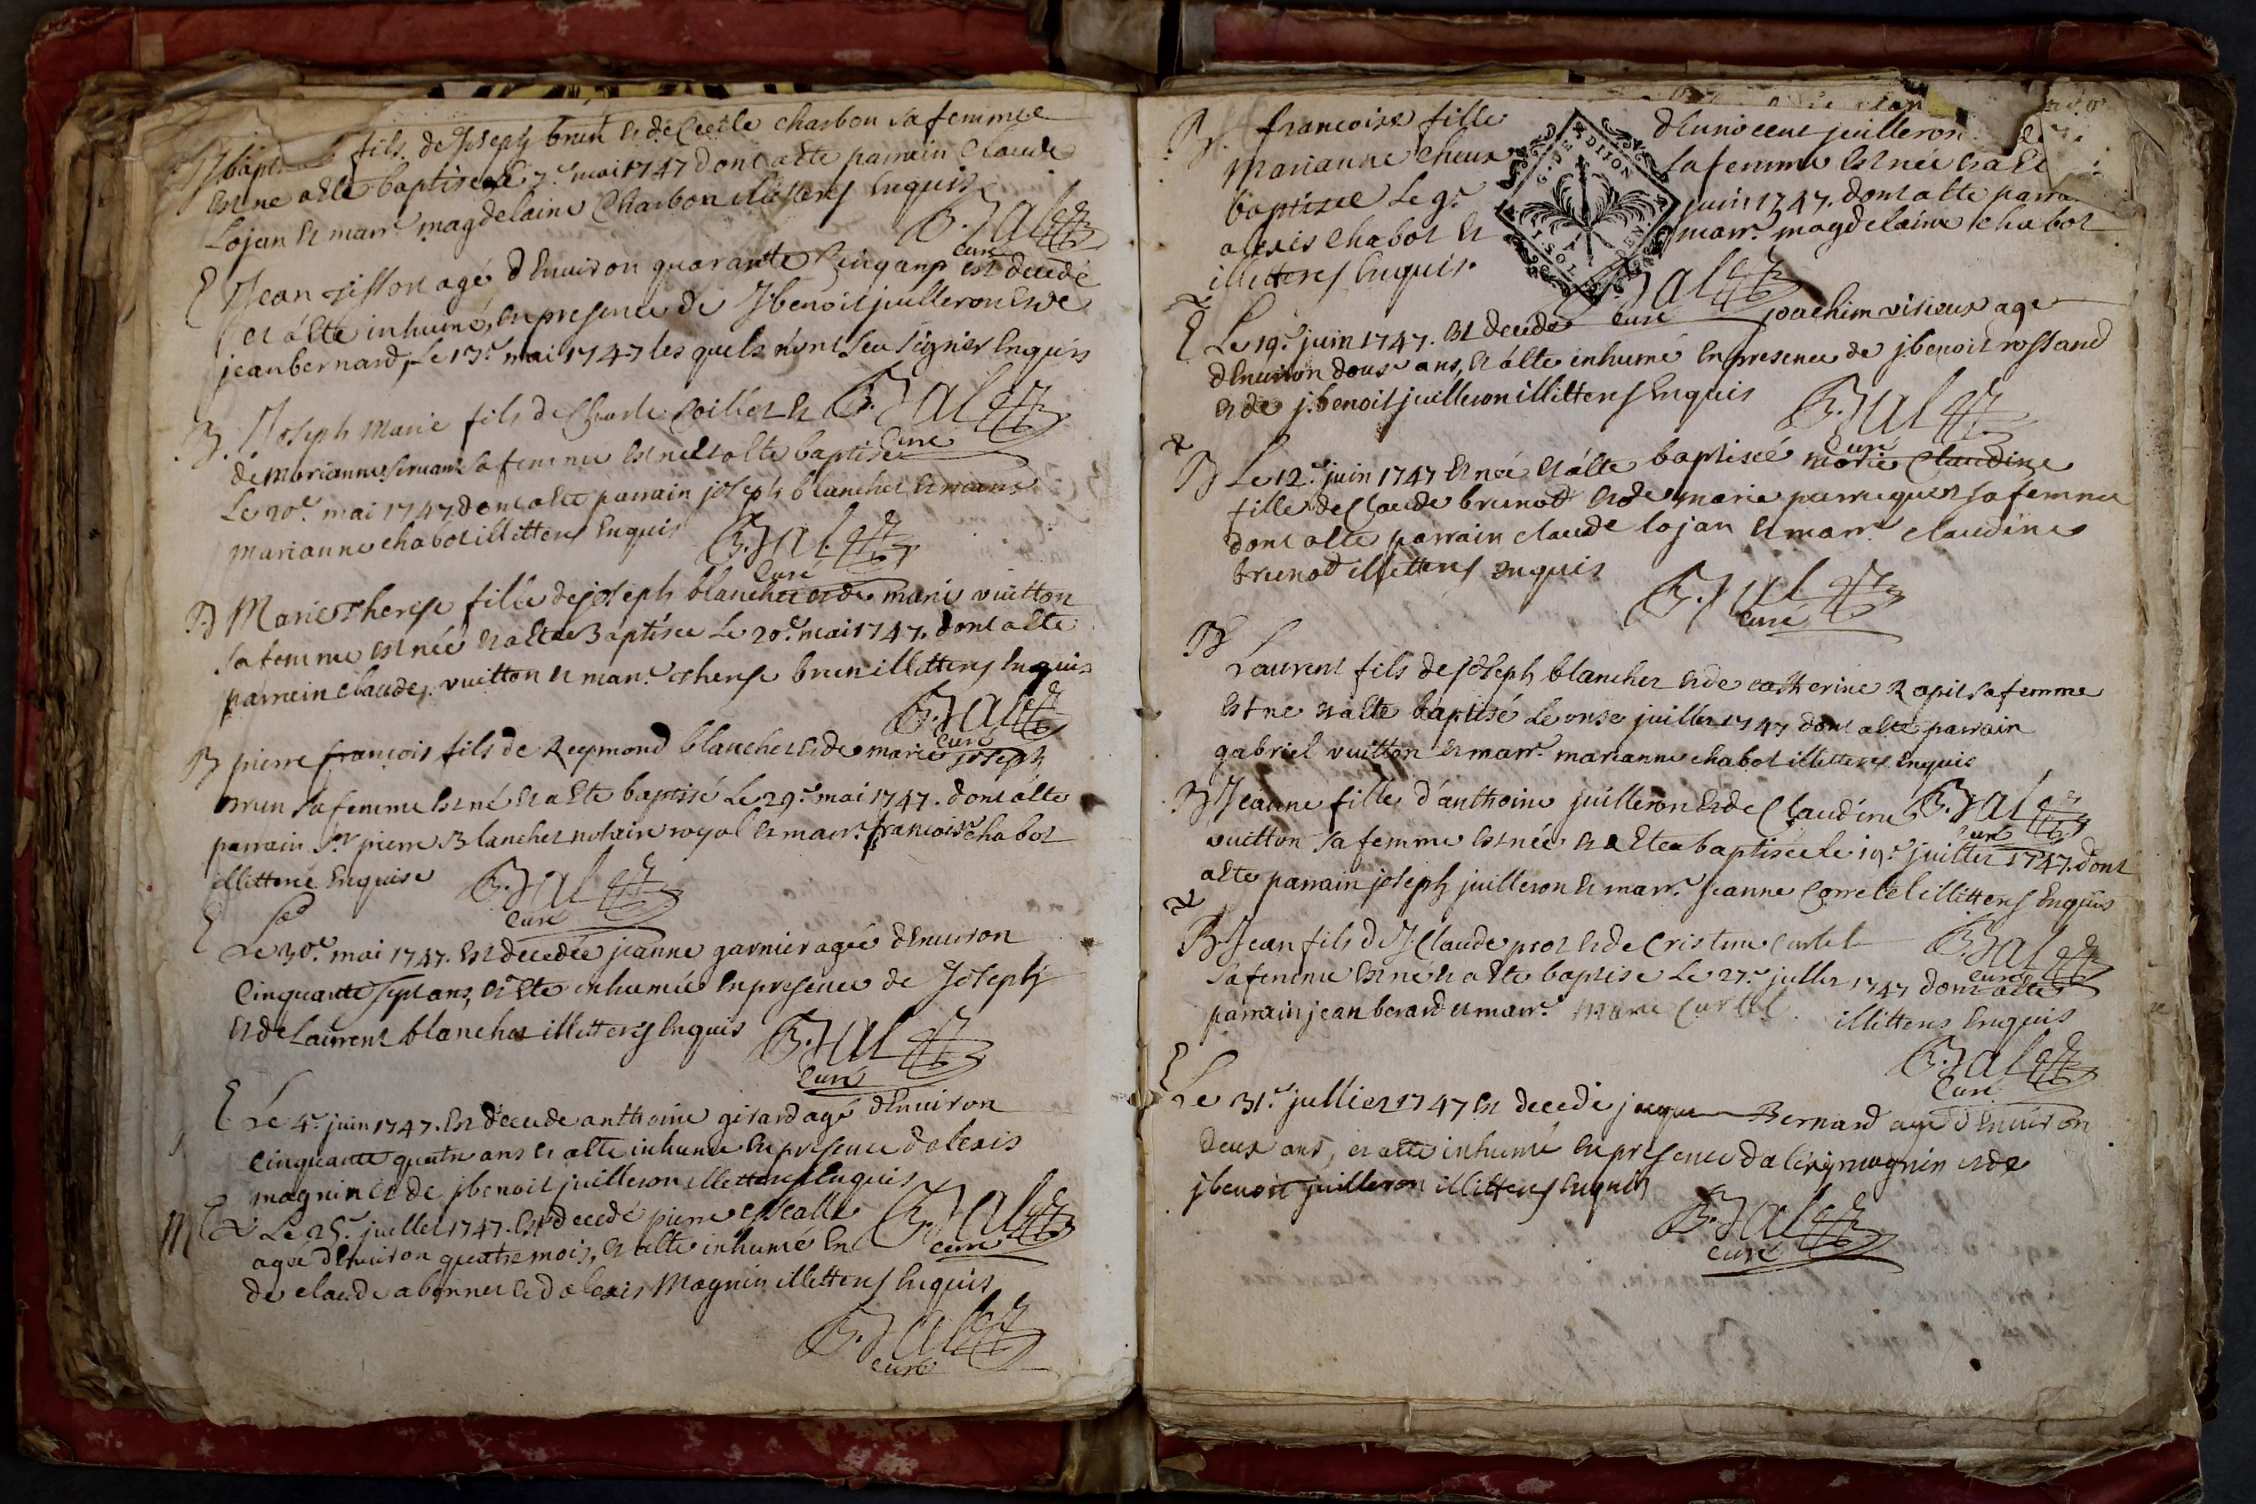 fils de Joseph brun et de Cecile charbon sa femme
est ne a ete baptisé le 7e mai 1747 dont a ete parrain Claude
Lojan et marr. magdelaine Charbon illitterez Enquis
curé
E Jean age d'Environ quarante cinq ans est decedé
et a ete inhumé, En presence de Jbenoit juilleron et de
jean bernard, Le 13e mai 1747 les quels n'ont seu signer Enquis
B. Joseph Marie fils de Charle Coillet et
curé
de Marianne sa femme est né et a ete baptisé
Le 20e mai 1747 dont a ete parrain joseph blanchet et marr.
Marianne chabot illitterez Enquis
curé
B Marie Therese fille de joseph blanchet et de marie vuitton
sa femme est née et a ete Baptisée Le 20e mai 1747. dont a ete
parrain Claude j. vuitton et marr. therese brun illitterez Enquis
curé
B pierre françois fils de Reymond blanchet et de marie joseph
brun sa femme est né et a ete baptisé Le 29e mai 1747. dont a ete
parrain Sr pierre Blanchet notaire royal et marr. francoise chabot
illitteré Enquise
curé
E Le 30e mai 1747. est decedée jeanne garnier agée d'Environ
Cinquante sept ans, et ete inhumée En presence de Joseph
et de Laurent blanchet illitterez Enquis
curé
E Le 4e juin 1747. est decede anthoine girard agé d'Environ
Cinquante quatre ans et a ete inhume En presence d'alexis
magnin et de jbenoit juilleron illitterez Enquis
Le 25e juillet 1747. est decedé pierre
curé
agee d'Environ quatre mois, et a ete inhumé En
de claude abonnet et d'alexis Magnin illitterez Enquis
curé
B. francoise fille d'Innocent juilleron
Marianne sa femme est née et a ete
baptisee Le 9e juin 1747. dont a ete parra
alexis Chabot et marr. magdelaine chabot
illitterez Enquis.
G. DE DIJON
curé
E Le 19e juin 1747. est decede joachim visieux age
d'Environ douse ans, et a ete inhumé En presence de jbenoit rossand
et de j.benoit juilleron illitterez Enquis
curé
B Le 12e juin 1747 est née et a ete baptisée Marie Claudine
fille de Claude brunod et de marie perruquet sa femme
dont a ete parrain claude lojan et marr. claudine
brunod illitterez enquis
curé
B
Laurent fils de joseph blanchet et de catherine Rapit sa femme
est ne et a ete baptisé Le onse juillet 1747 dont a ete parrain
gabriel vuitton et marr. marianne chabot illitterez enquis
B Jeanne fille d'anthoine juilleron et de Claudine
curé
vuitton sa femme est née et a ete baptisée le 19e juillet 1747. dont
a ete parrain joseph juilleron et marr. jeanne Corretel illitterez Enquis
B Jean fils de J Claude prot et de Cristine Curtel
curé
sa femme est né et a ete baptise Le 27e jullet 1747 dont a ete
parrain jean berard et marr. Marie Curtel. illitterez Enquis
curé
E Le 31e jullier 1747 est decede jacque Bernard agé d'Environ
deux ans, et a ete inhumé En presence d'alexis magnin et de
jbenoit juilleron illitterez Enquis
curé